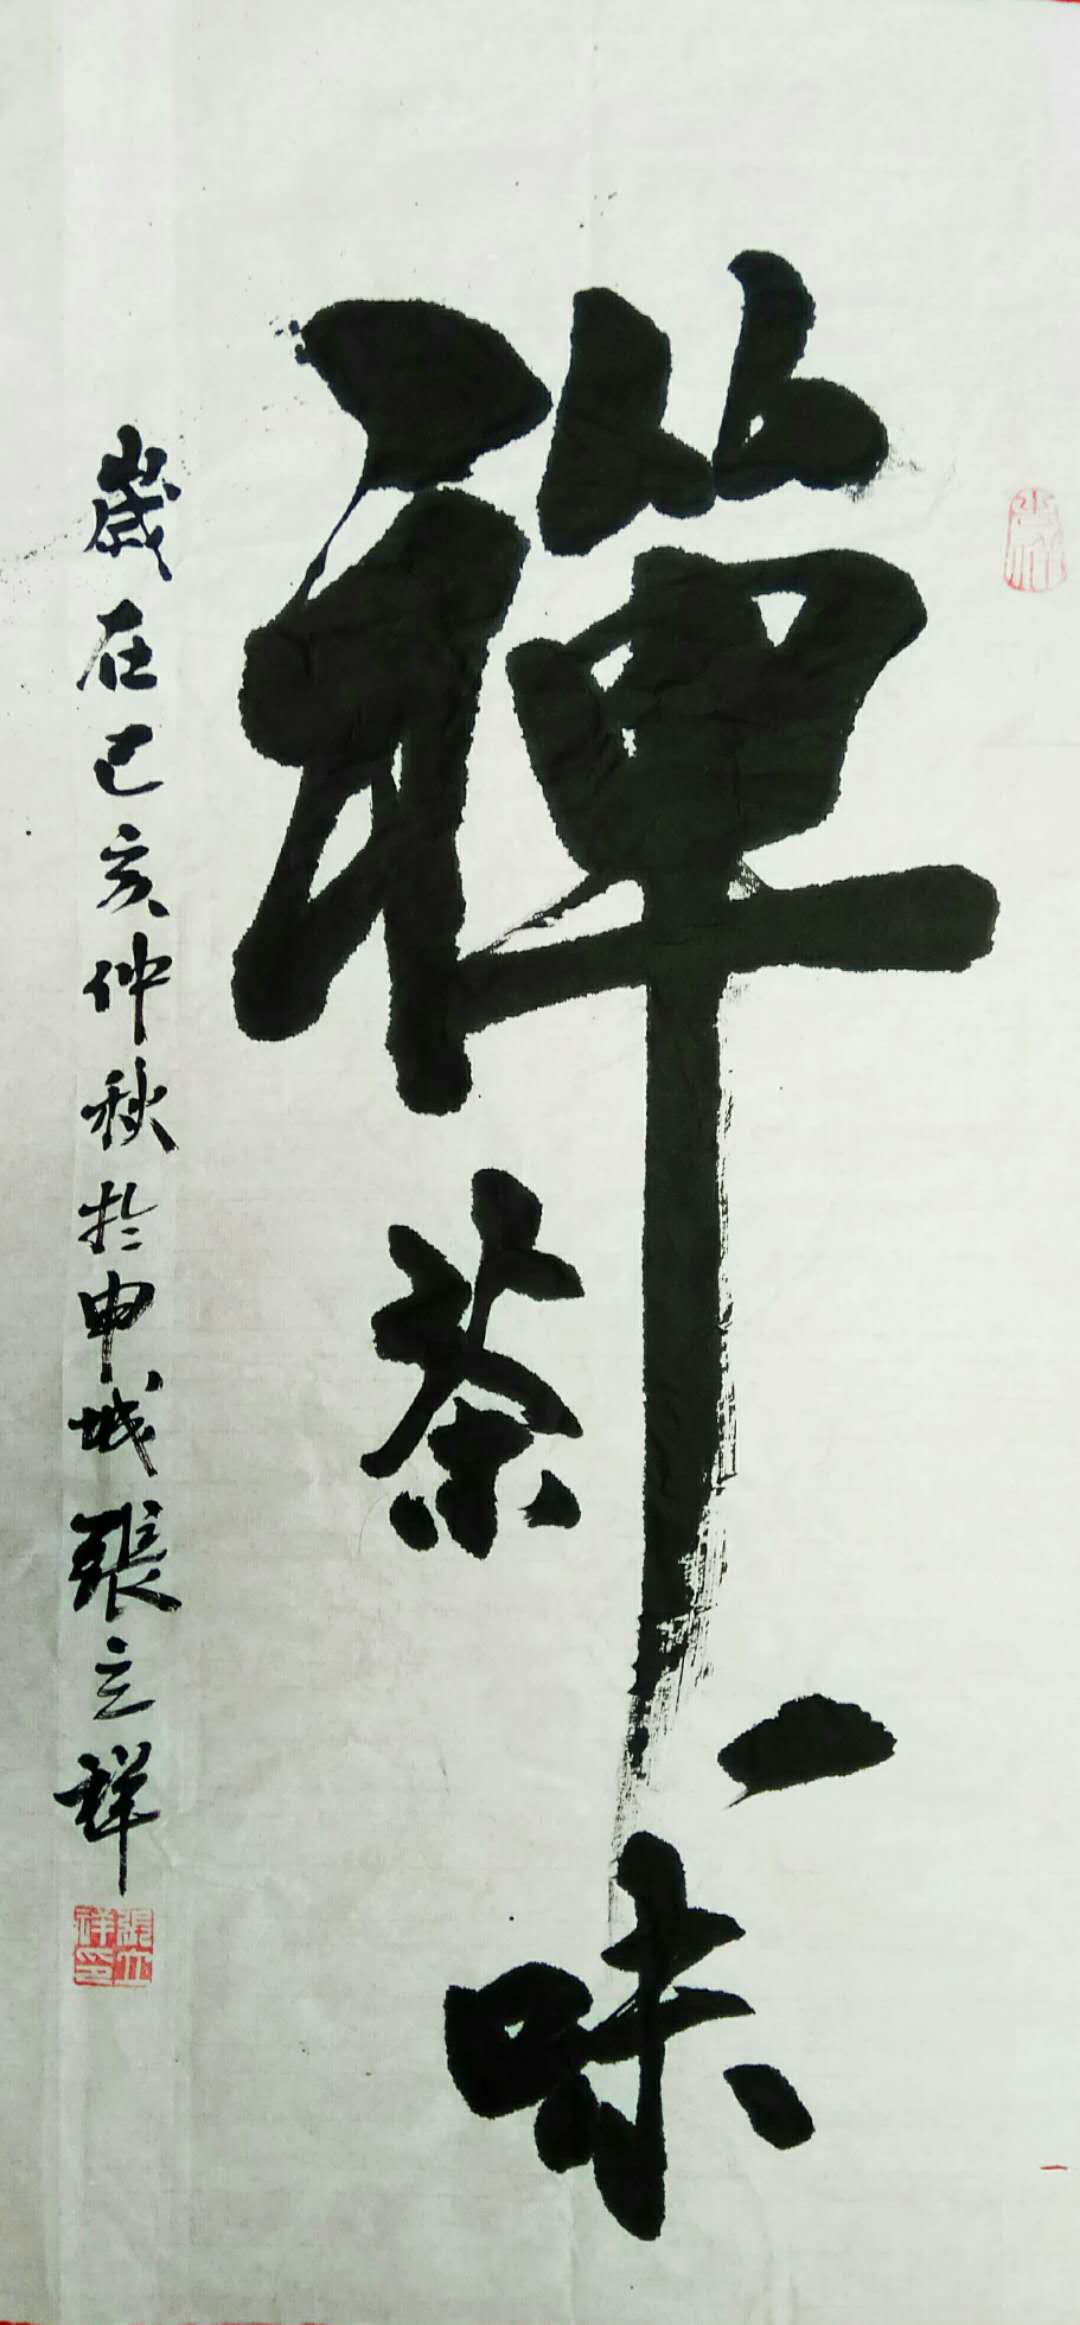 禪茶一味
歲在己亥仲秋於申城張立祥
張立祥印